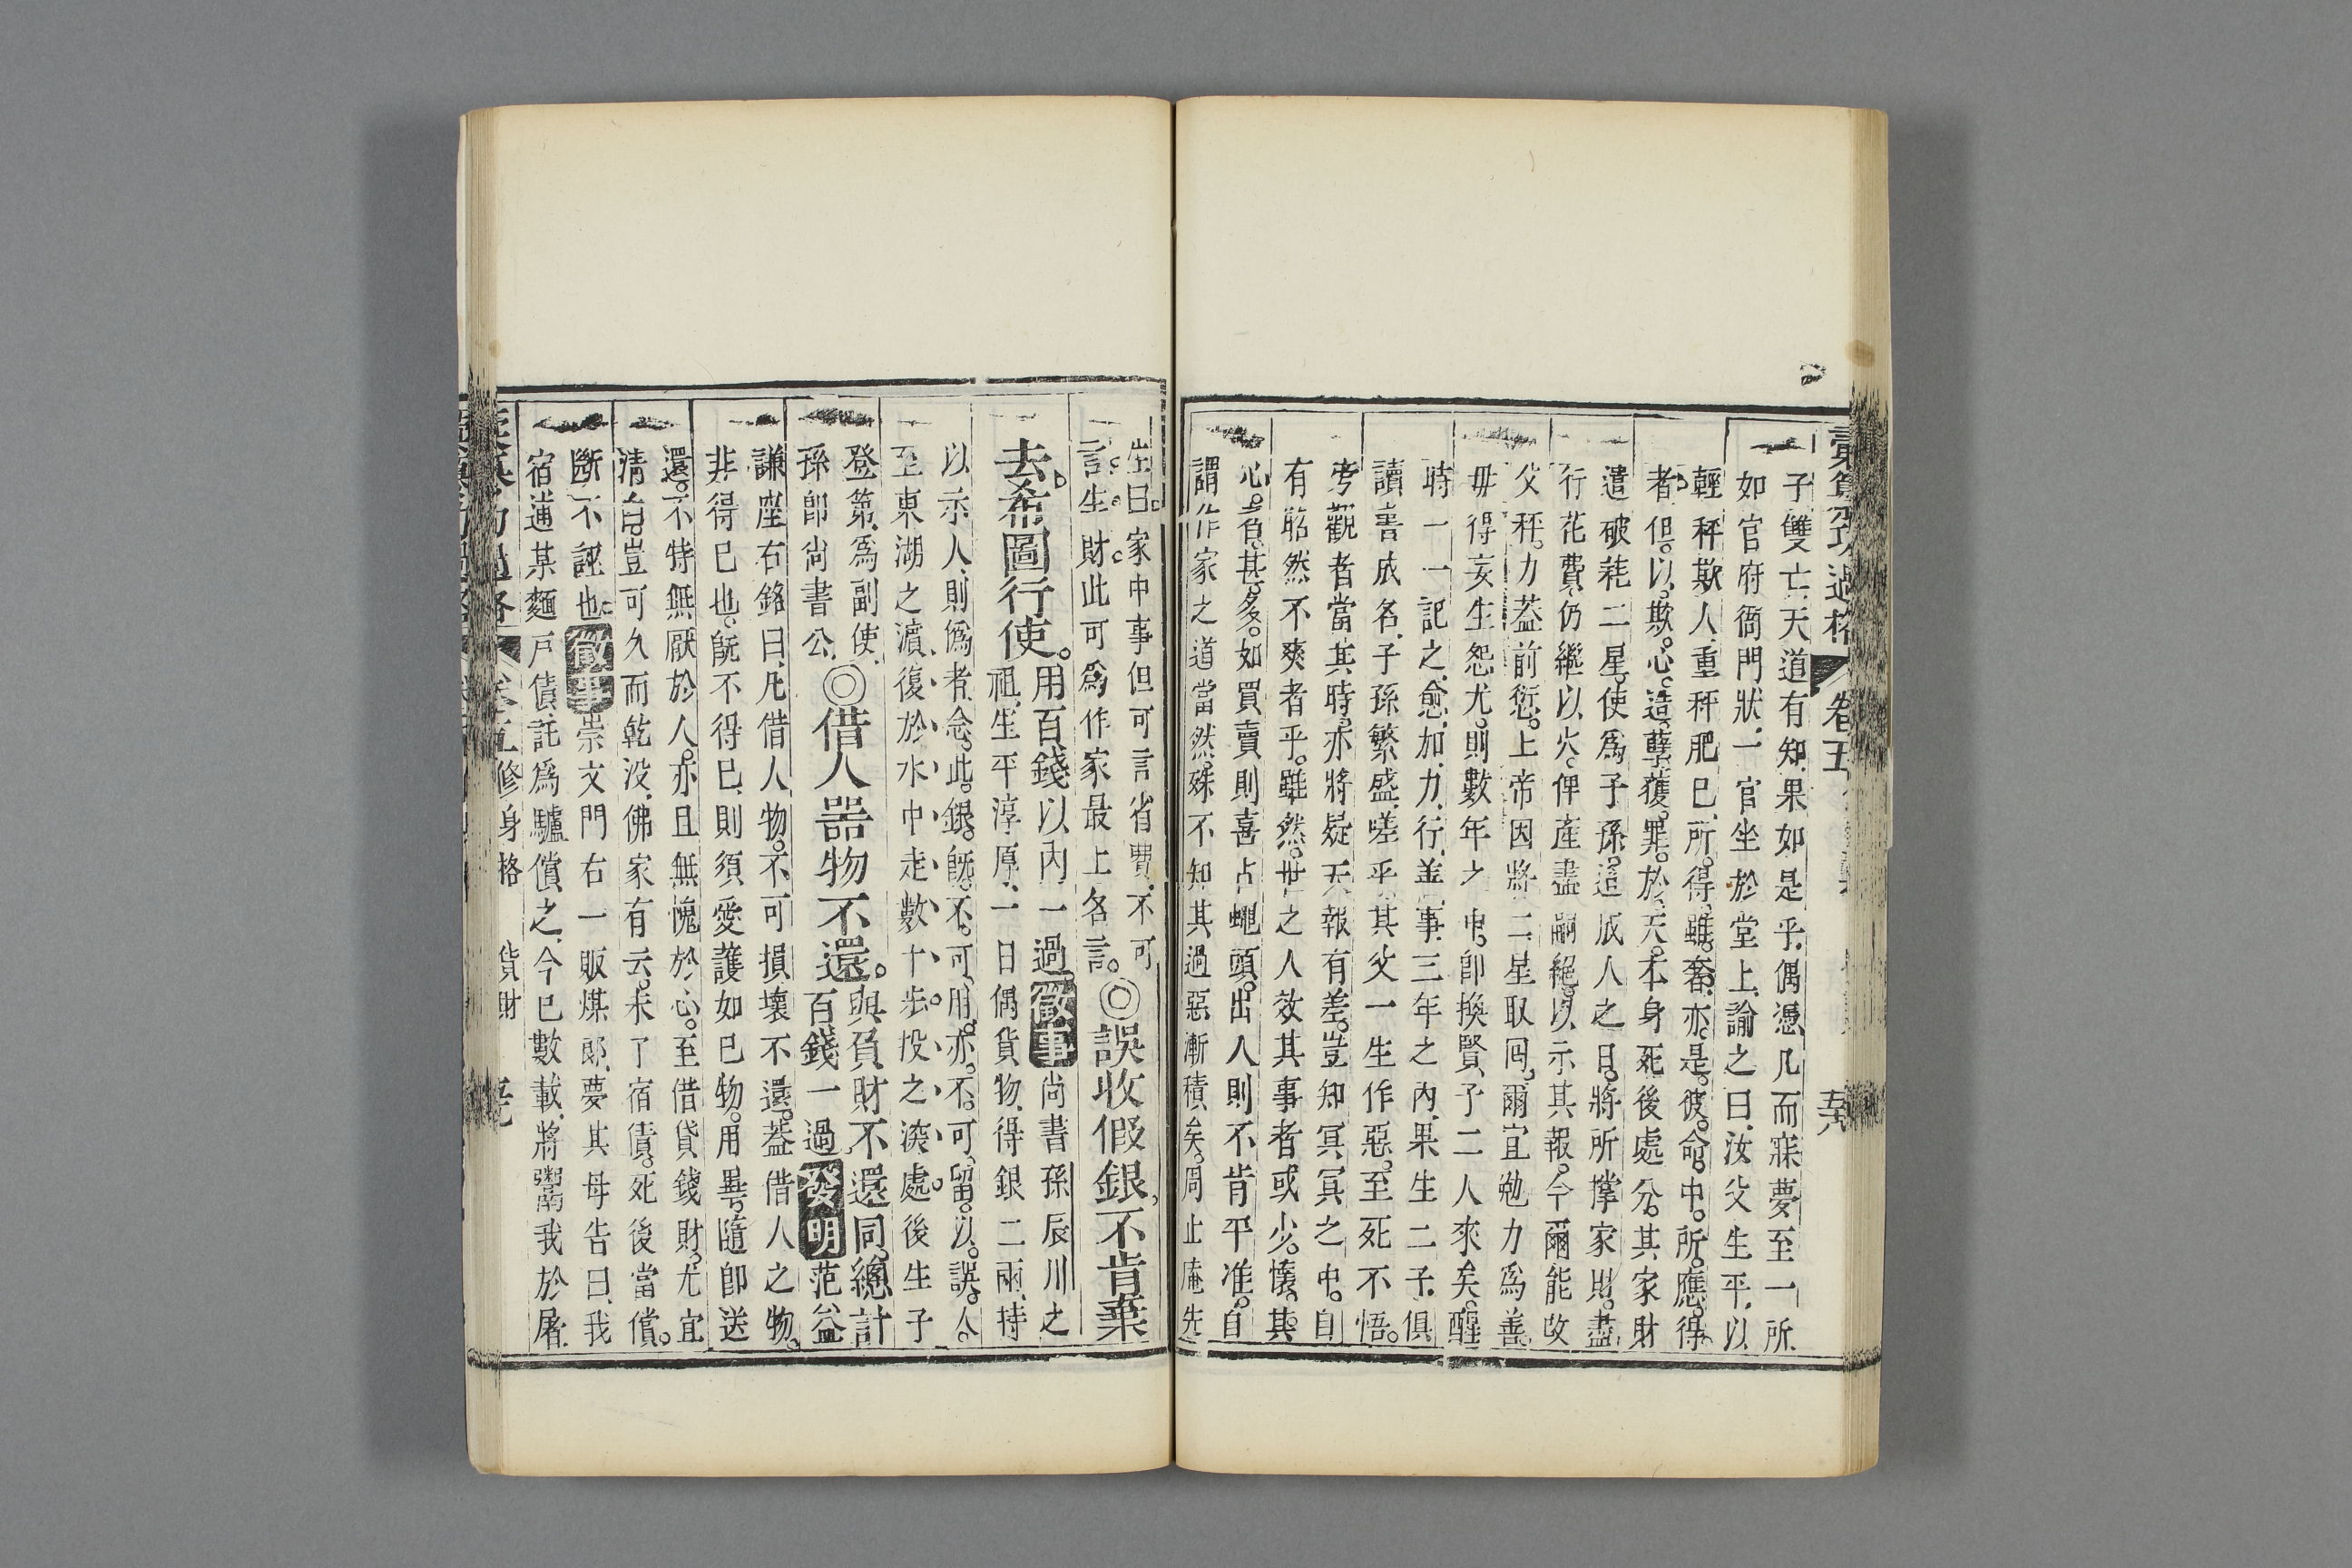 彙纂功過格 卷五
子雙亡天道有知果如是乎偶憑几而寐夢至一所
如官府衙門狀一官坐於堂上諭之曰汝父生平以
輕秤欺人重秤肥已所得雖奢亦是彼命中所應得
者但以欺心造孽獲罪於天本身死後處分其家財
遣破耗二星使爲子孫這厎人之目將所掌家財盡
行花費仍繼以火俾產盡嗣絕以示其報今爾能改
父秤力葢前愆上帝因將二星取囘爾宜勉力爲善
毋得妄生怨尤則數年之中卽換賢子二人來矣醒
時一一記之愈加力行善事三年之內果生二子俱
讀書成名子孫繁盛嗟乎其父一生作惡至死不悟
旁觀者當其時亦將疑天報有差豈知冥冥之中自
有昭然不爽者乎雖然世之人效其事者或少懷其
心者甚多如買賣則喜占蠅頭出入則不肯平准自
謂作家之道當然殊不知其過惡漸積矣周止庵先
生曰家中事但可言省費不可
言生財此可爲作家最上名言◎誤收假銀不肯棄
去希圖行使用百錢以內一過徵事尚書孫辰川之
祖生平淳厚一日偶貨物得銀二兩持
以示人則僞者念此銀旣不可用亦不可留以誤人
至東湖之濵復於水中走數十步投之淡處後生子
登第爲副使
孫卽尚書公◎借人器物不還與負財不還同總計
百錢一過發明范益
謙座右銘曰凡借人物不可損壞不還葢借人之物
非得已也旣不得已則須愛護如已物用畢隨卽送
還不特無厭於人亦且無愧於心至借貸錢財尤宜
清白豈可久而乾沒佛家有云未了宿債死後當償
斷不誣也徵事崇文門右一販煤郎夢其母告曰我
宿逋某麵戸債託爲驢償之今已數載將鬻我於屠
彙纂功過格 卷五修身格 貨財